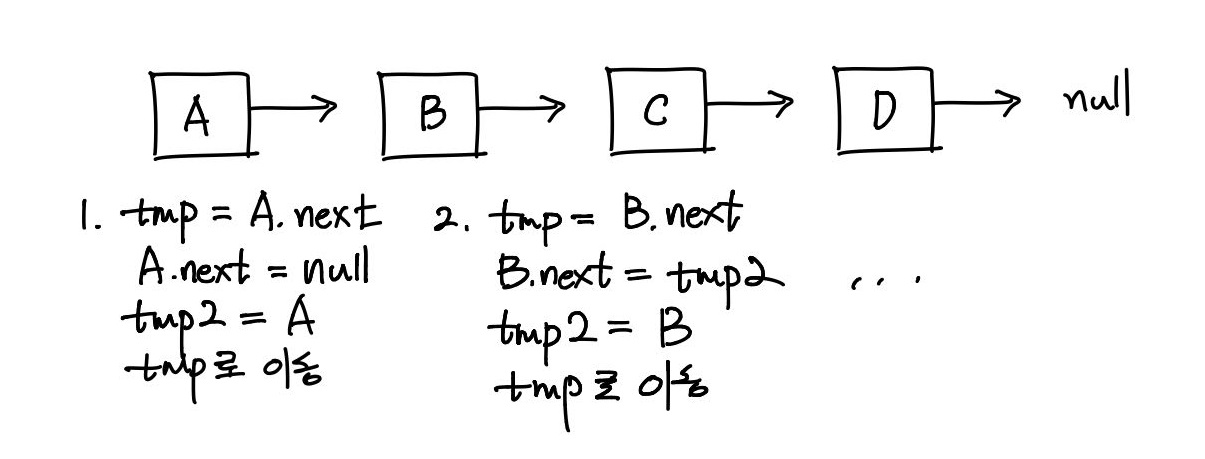 A B C D null
1. tmp = A.next
A.next = null
tmp2 = A
tmp로 이동
2. tmp = B.next
B.next = tmp2
tmp2 = B
tmp로 이동
...